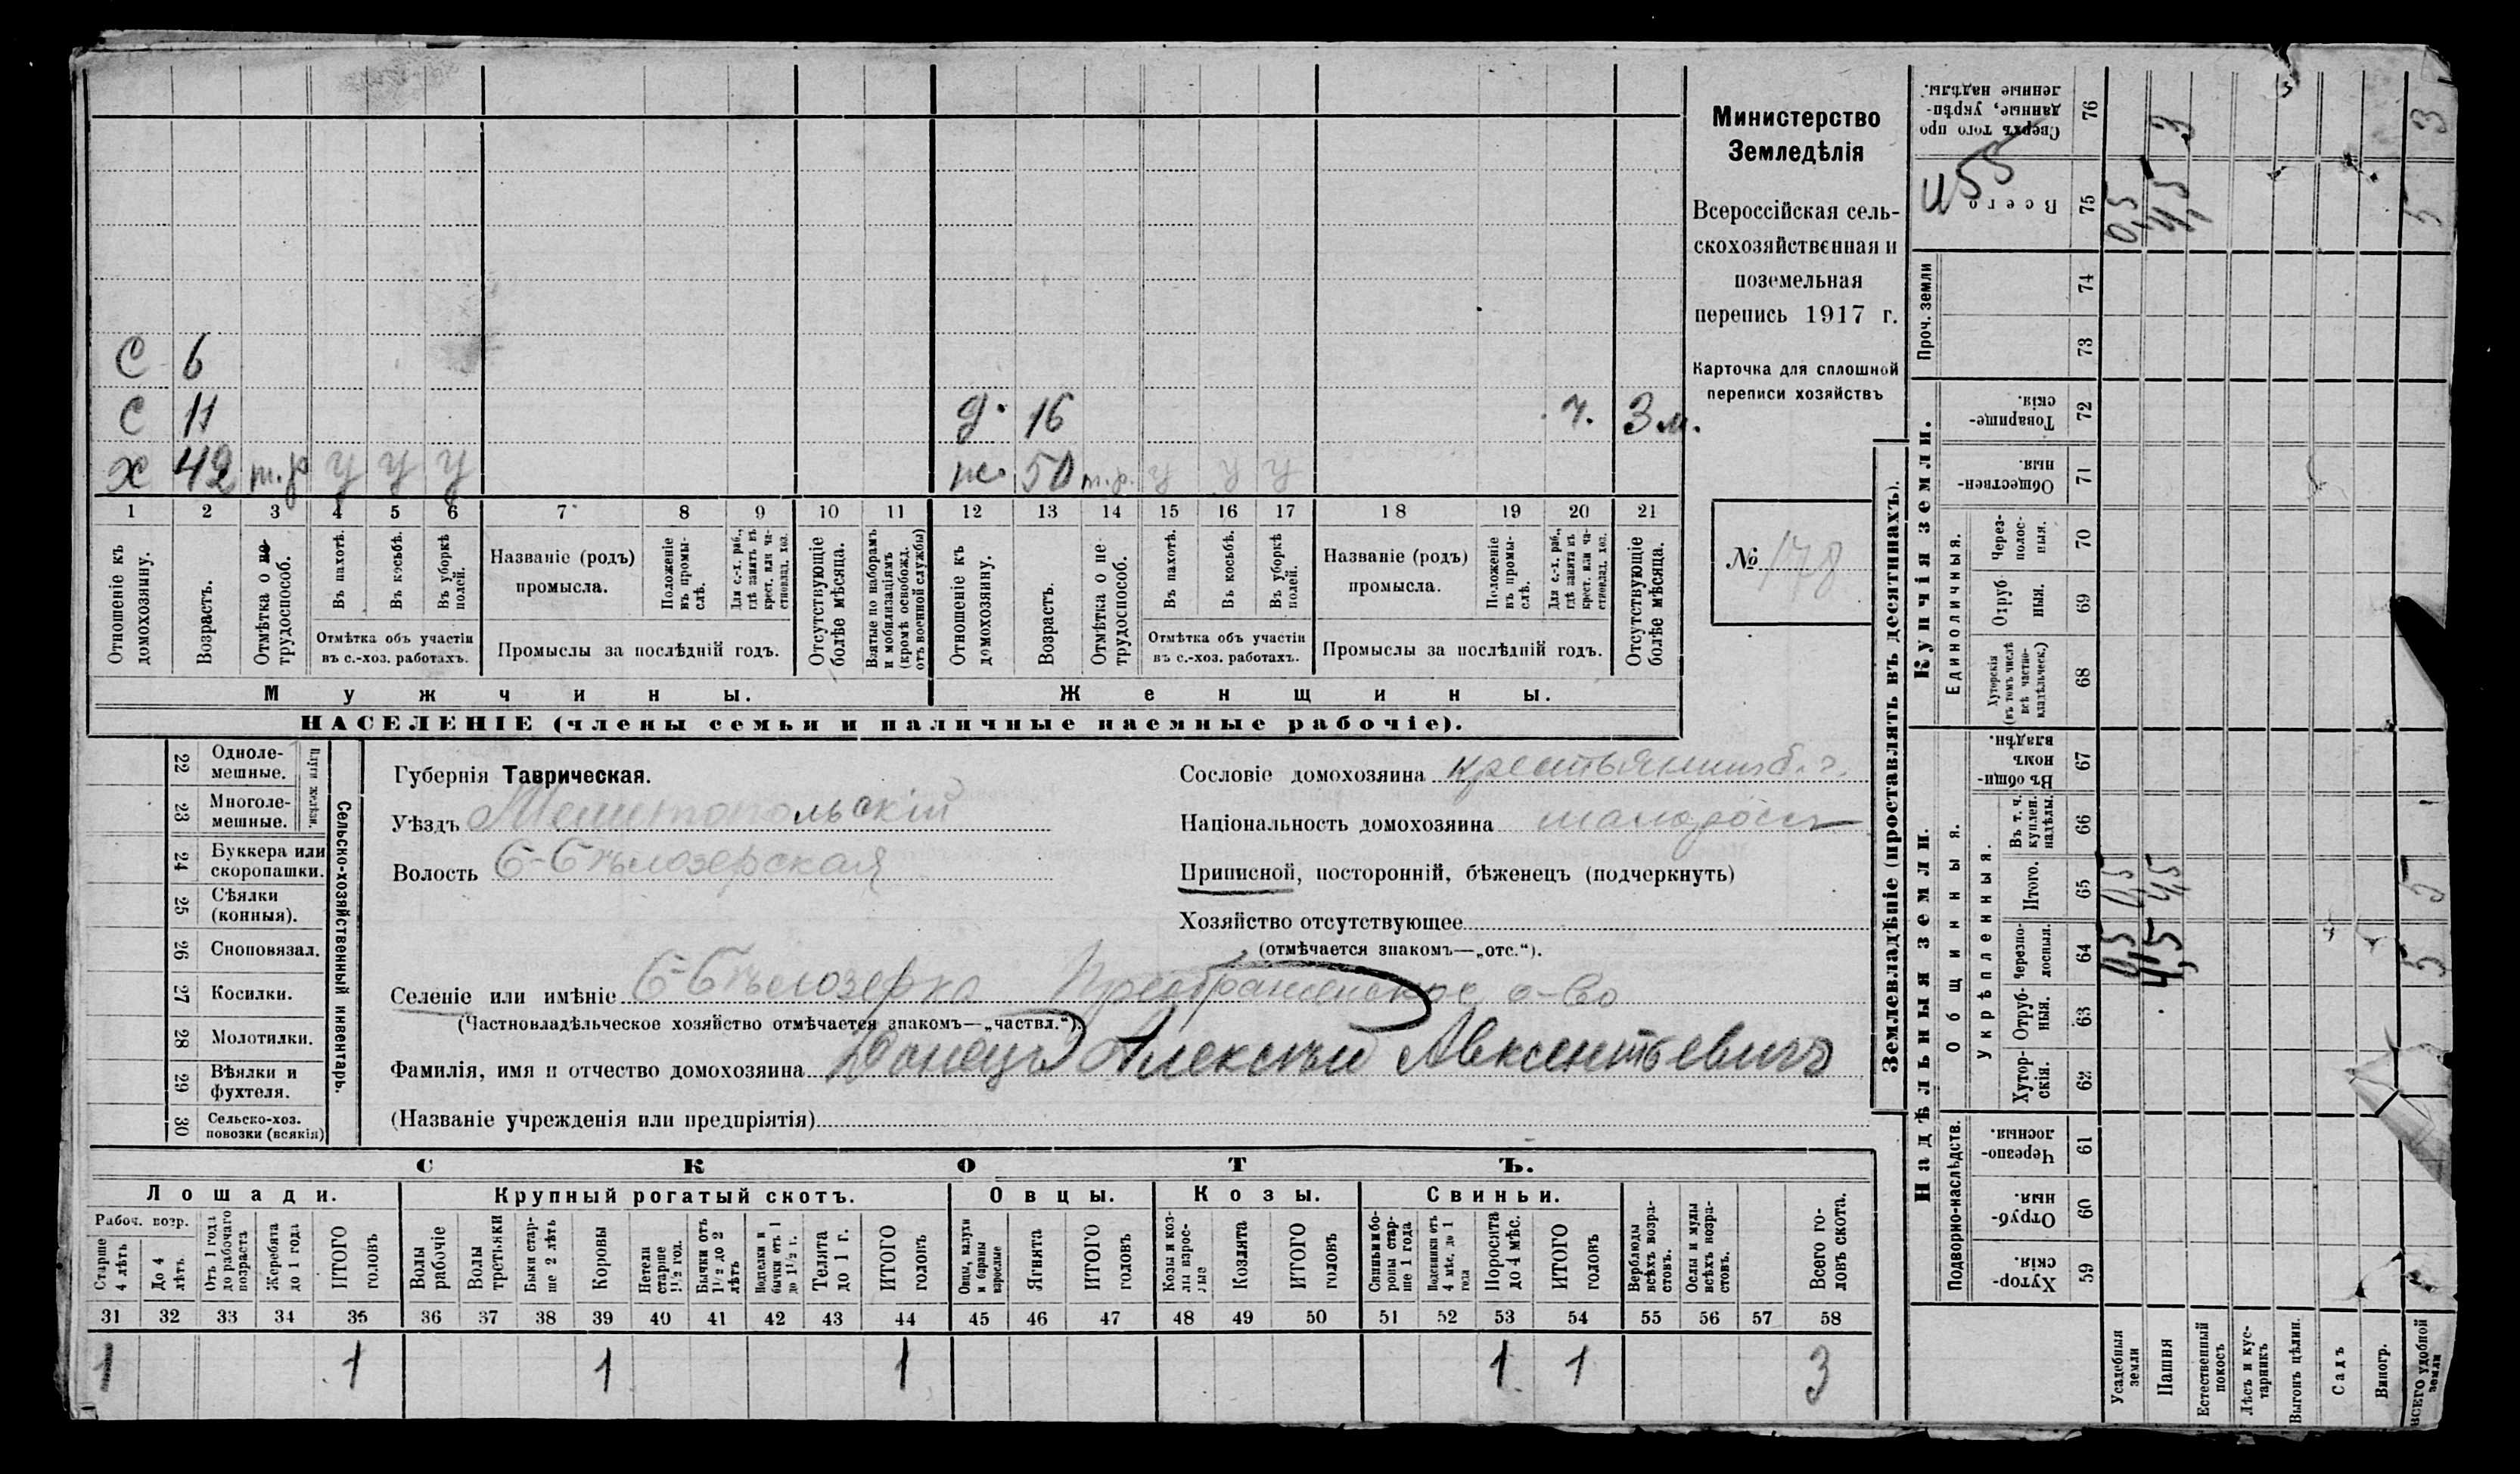 Министерство
Земледѣлія
Всероссійская сель-
скохозяйственная и
поземельная
перепись 1917 г.
Карточка для сплошной
переписи хозяйствъ
№ 178
С 6
С 11 д. 16 ч. 3 м.
х 42 т.р у у у ж. 50 т.р. у у у
1 2 3 4 5 6 7 8 9 10 11 12 13 14 15 16 17 18 19 20 21
Отношеніе къ домохозяину.
Возрастъ.
Отмѣтка о не трудоспособ.
Въ пахотѣ.
Въ косьбѣ.
Въ уборкѣ полей.
Отмѣтка объ участіи
въ с.-хоз. работахъ.
Названіе (родъ)
промысла.
Положеніе въ промы- слѣ.
Для с.-х. раб., гдѣ занятъ въ крест. или ча- стновлад. хоз.
Промыслы за послѣдній годъ.
Отсутствующіе болѣе мѣсяца.
Взятые по наборамъ и мобилизаціямъ (кромѣ освобожд. отъ военной службы)
Отношеніе къ домохозяину.
Возрастъ.
Отмѣтка о не трудоспособ.
Въ пахотѣ.
Въ косьбѣ.
Въ уборкѣ полей.
Отмѣтка объ участіи
въ с.-хоз. работахъ.
Названіе (родъ)
промысла.
Положеніе въ промы- слѣ.
Для с.-х. раб., гдѣ занята въ крест. или ча- стновлад. хоз.
Промыслы за послѣдній годъ.
Отсутствующіе болѣе мѣсяца.
Мужчины. Женщины.
НАСЕЛЕНІЕ (члены семьи и наличные наемные рабочіе).
Сельско-хозяйственный инвентарь.
Плуги желѣзн.
22 Одноле-
мешные.
23 Многоле-
мешные.
24 Буккера или
скоропашки.
25 Сѣялки
(конныя).
26 Сноповязал.
27 Косилки.
28 Молотилки.
29 Вѣялки и
фухтеля.
30 Сельско-хоз.
повозки (всякія)
Губернія Таврическая.
Уѣздъ Мелитопольскій
Волость Б-Бѣлозерская
Сословіе домохозяина крестьянинъ
Національность домохозяина малоросъ
Приписной, посторонній, бѣженецъ (подчеркнуть)
Хозяйство отсутствующее
(отмѣчается знакомъ—„отс.“).
Селеніе или имѣніе Б-Бѣлозерка Преображенское о-во
(Частновладѣльческое хозяйство отмѣчается знакомъ—„частвл.“).
Фамилія, имя и отчество домохозяина Донецъ Алексѣй Авксентьевичъ
(Названіе учрежденія или предпріятія)
СКОТЪ.
Лошади. Крупный рогатый скотъ. Овцы. Козы. Свиньи.
Рабоч. возр.
Старше 4 лѣтъ
До 4 лѣтъ.
Отъ 1 года до рабочаго возраста
Жеребята до 1 года
ИТОГО головъ
Волы рабочіе
Волы третьяки
Быки стар- ше 2 лѣтъ
Коровы
Нетели старше 1½ год.
Бычки отъ 1½ до 2 лѣтъ
Подтелки и бычки отъ 1 до 1½ г.
Телята до 1 г.
ИТОГО головъ
Овцы, валухи и бараны взрослые
Ягнята
ИТОГО головъ
Козы и коз- лы взрос- лые
Козлята
ИТОГО головъ
Свиньи и бо- ровы стар- ше 1 года
Подсвинки отъ 4 мѣс. до 1 года
Поросята до 4 мѣс.
ИТОГО головъ
Верблюды всѣхъ возра- стовъ.
Ослы и мулы всѣхъ возра- стовъ.
Всего го- ловъ скота.
31 32 33 34 35 36 37 38 39 40 41 42 43 44 45 46 47 48 49 50 51 52 53 54 55 56 57 58
1 1 1 1 1 1 3
Землевладѣніе (проставлять въ десятинахъ).
Надѣльныя земли. Купчія земли. Проч. земли
Подворно-наслѣдств.
Общинныя.
Укрѣпленныя.
Единоличныя.
59 Хутор- скія.
60 Отруб- ныя.
61 Черезпо- лосныя.
62 Хутор- скія.
63 Отруб- ныя.
64 Черезпо- лосныя.
65 Итого.
66 Въ т. ч. куплен. надѣлы.
67 Въ общин- номъ владѣн.
68 Хуторскія (въ томъ числѣ всѣ частно- владѣльческ.)
69 Отруб- ныя.
70 Через- полос- ныя.
71 Обществен- ныя.
72 Товарище- скія.
73
74
75 Всего
76 Сверхъ того про- данные, укрѣп- ленные надѣлы.
Усадебныя земли 0,5 0,5 0,5
Пашня 4,5 4,5 4,5 3
Естественный покосъ
Лѣсъ и кус- тарникъ
Выгонъ цѣлин.
Садъ
Виногр.
ВСЕГО удобной земли 5 5 5 3